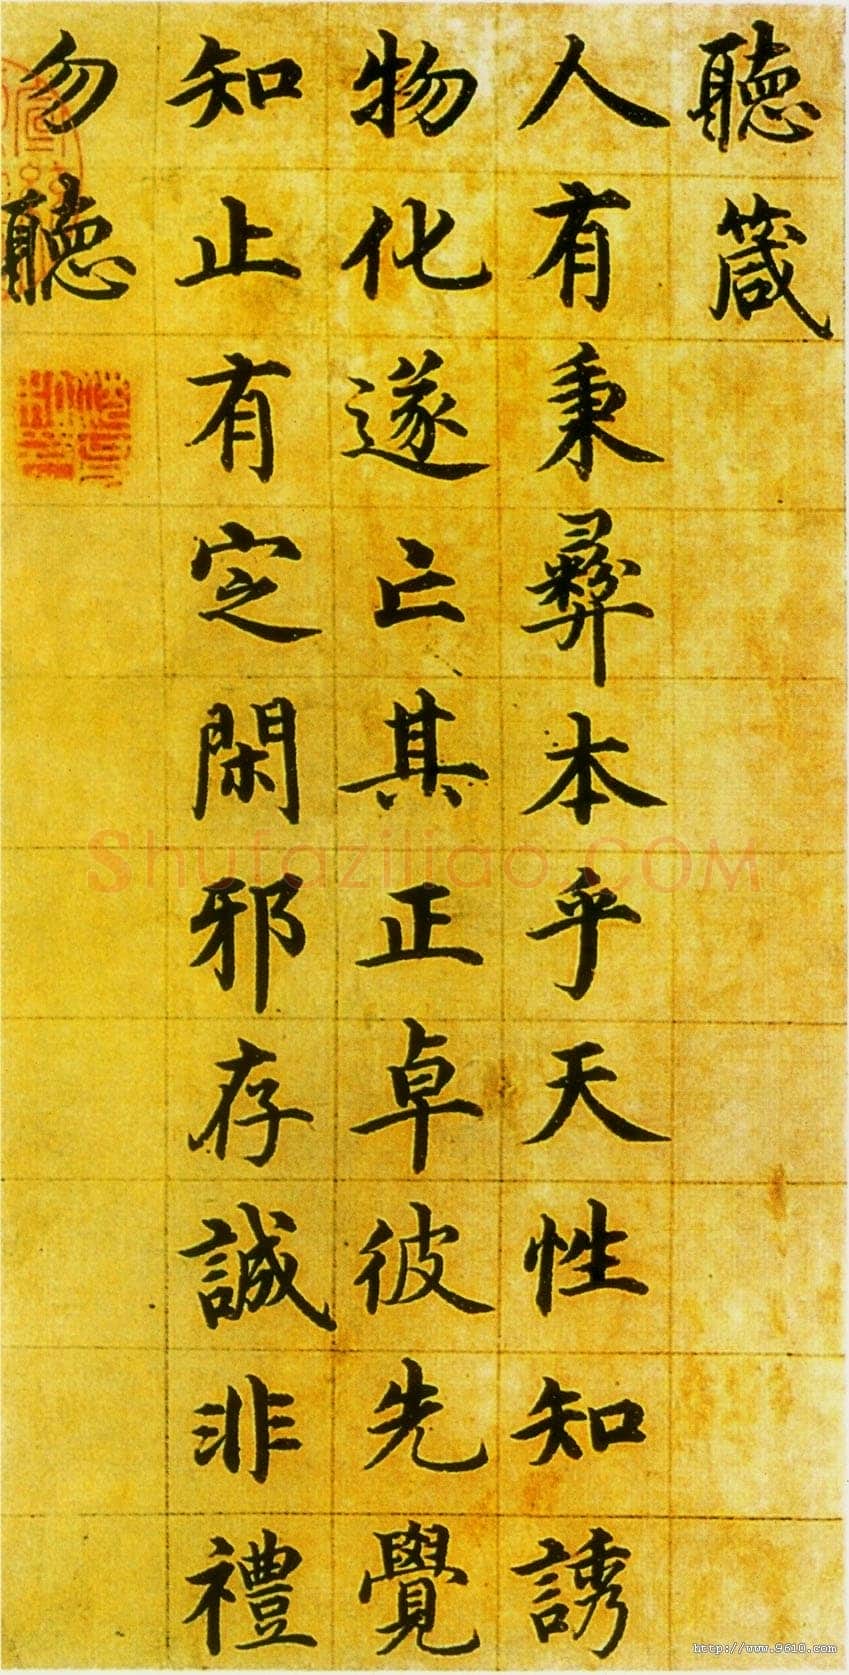 聽箴
人有秉彞本乎天性知誘
物化遂亡其正卓彼先覺
知止有定閑邪存誠非禮
勿聽
Shufaziliao.COM
http://www.9610.com